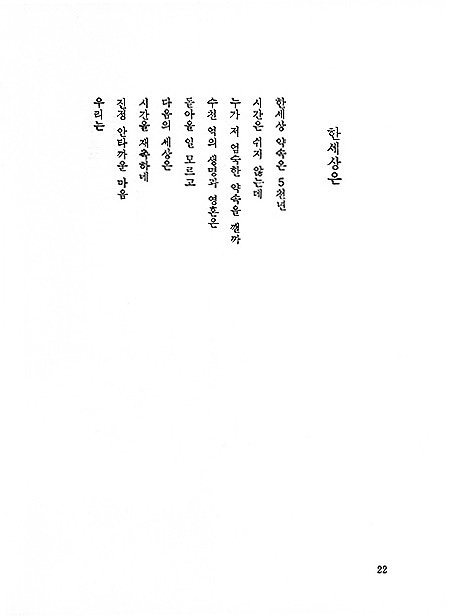 한세상은
한세상 약속은 5천년
시간은 쉬지 않는데
누가 저 엄숙한 약속을 깰까
수천 억의 생명과 영혼은
돌아올 일 모르고
다음의 세상은
시간을 재촉하네
진정 안타까운 마음
우리는
22